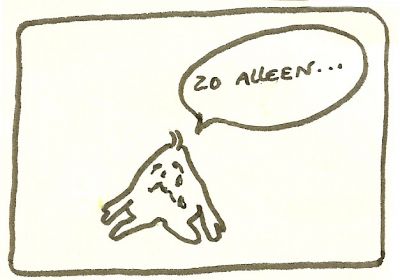 ZO ALLEEN...